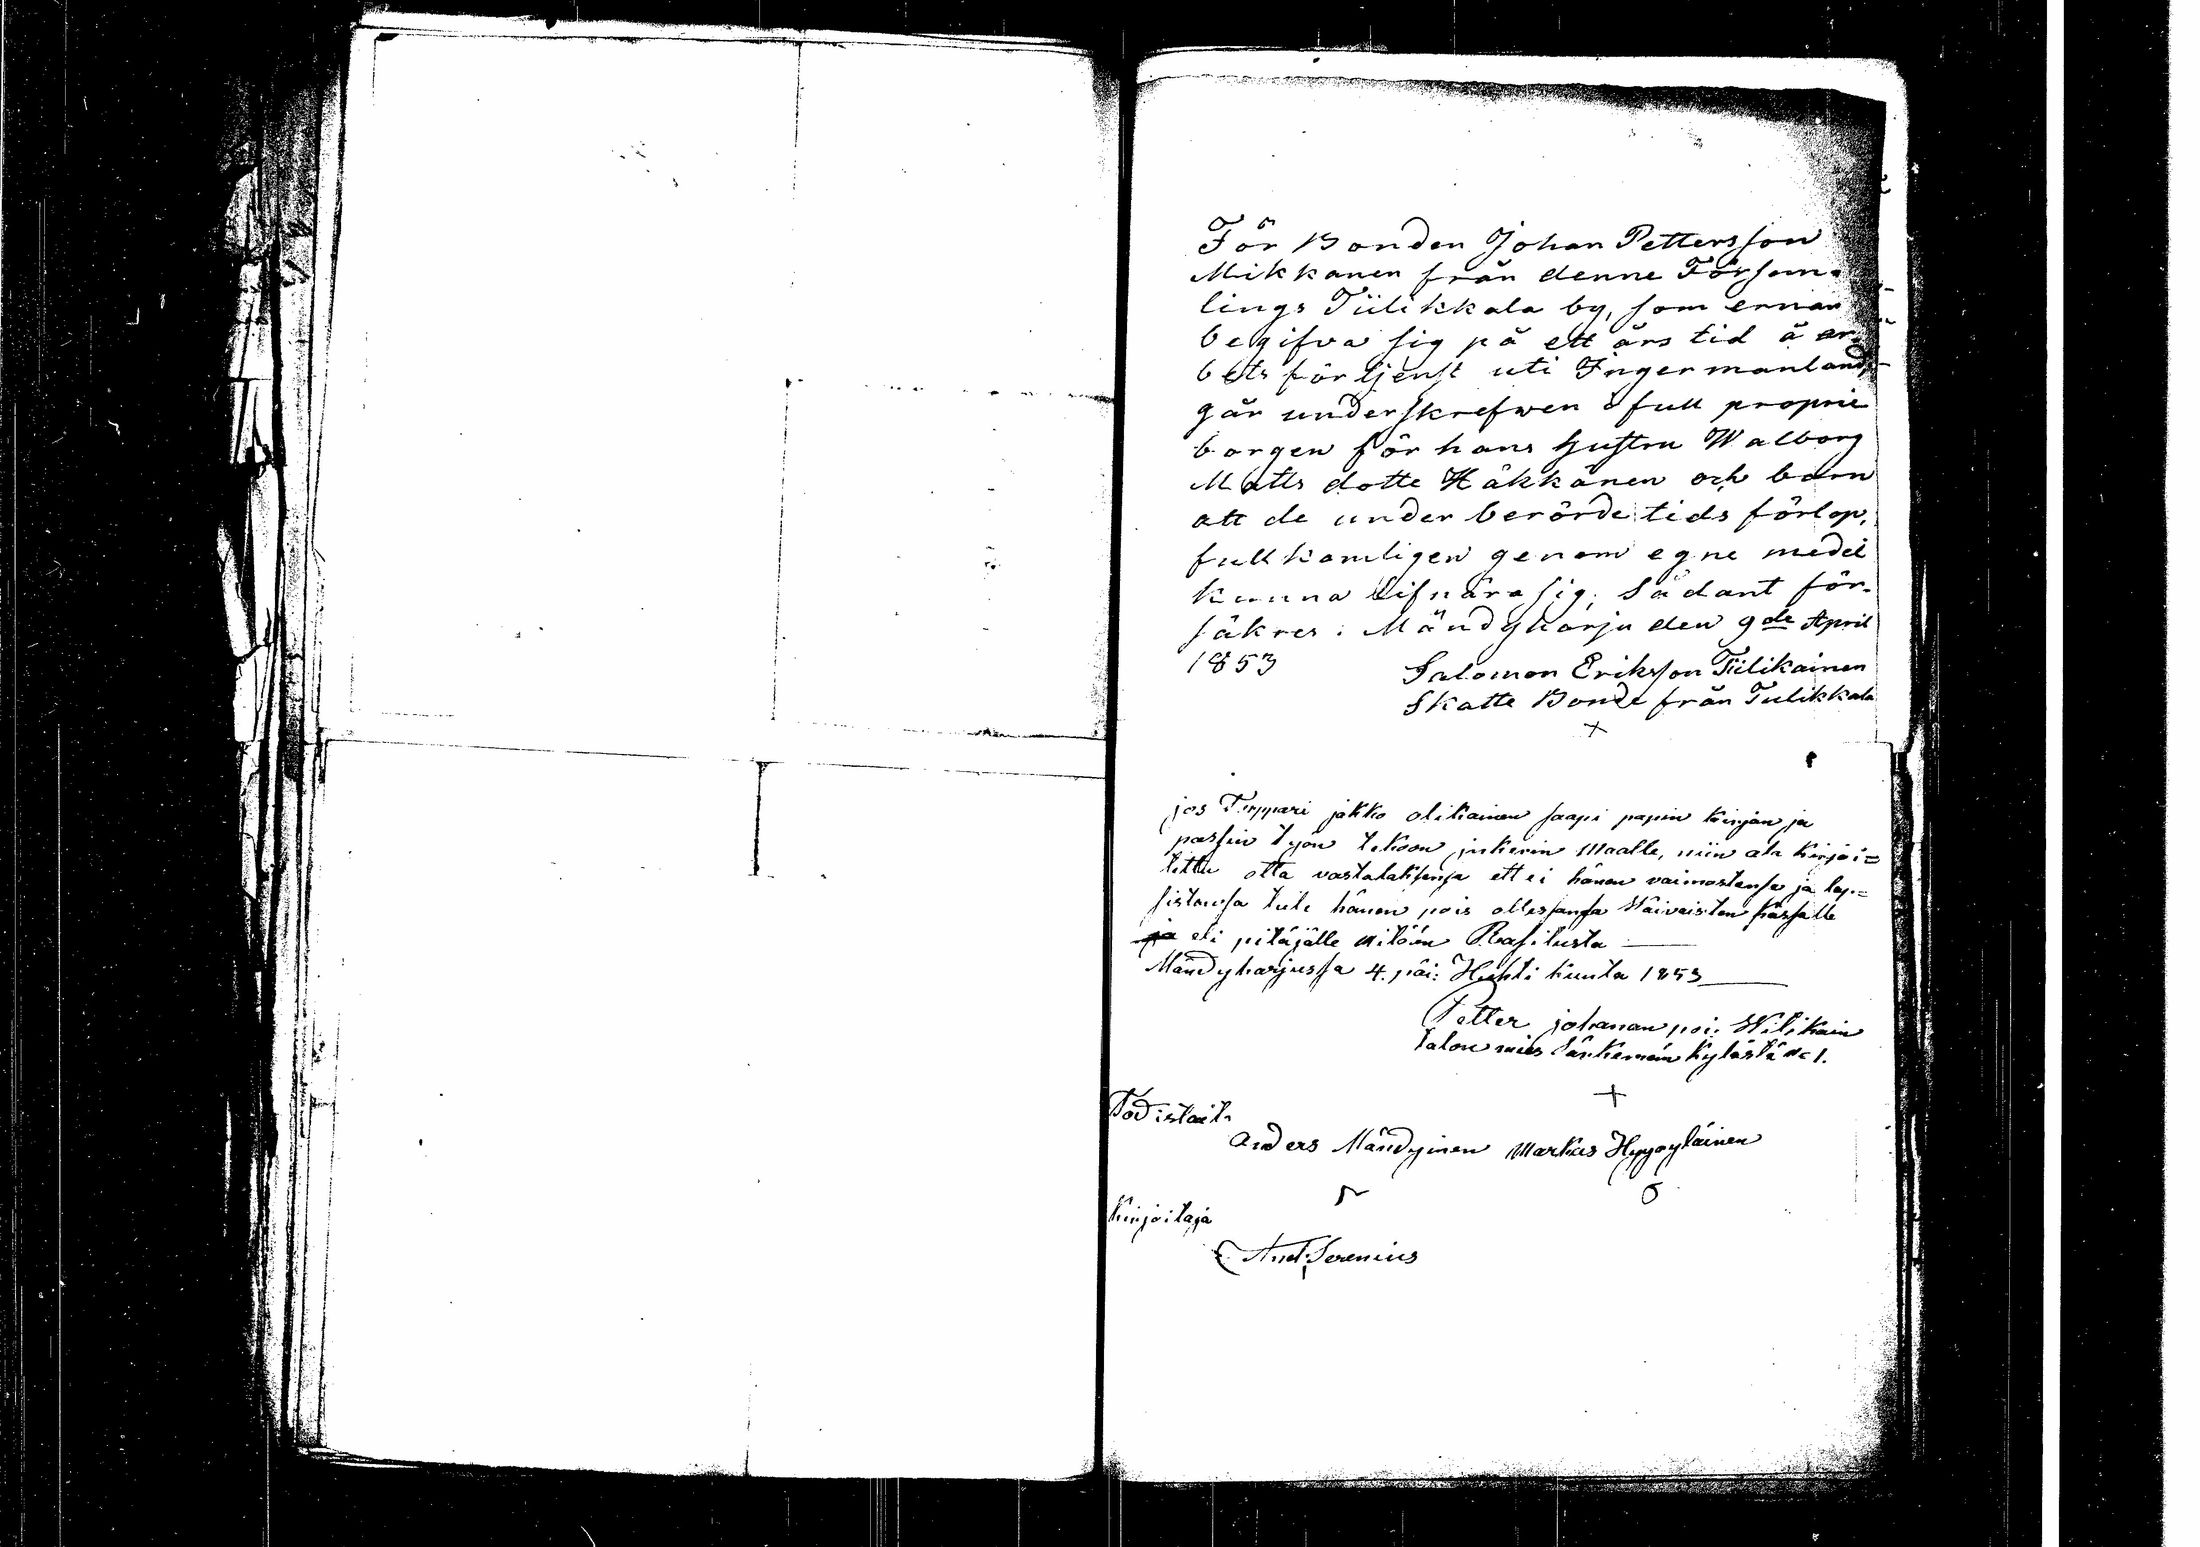 För Bonden Johan Pettersson
Mikkanen från denne Försam-
lings Tiilikkala by, som ernar
begifva sig på ett års tid å ar-
bets förtjenst uti Ingermanland,
går underskrefwen i full proprie
borgen för hans hustru Walborg
Matts dotte Häkkänen och barn
att de under berörde tids förlop,
fullkomligen genom egne medel
kunna lifnära sig, Sådant för-
säkres. Mändyharju den 9de April
1853
Salomon Eriksson Tiilikainen
Skatte Bonde från Tiilikkala
+
jos Torppari jakko olikainen saapi papin kirjan ja
passin työn tekoon inkerin Maalle, niin ala kirjoi=
tettu otta vastataksensa ett ei hänen vaimostansa ja lap=
sistansa tule hänen pois ollessansa Waivaisten kassalle
ja eli pitäjälle mitään Rasitusta
Mändyharjussa 4. päi: Huhti kuuta 1853
Petter johanan poi: Wilikain
talon mies kylästä No 1.
+
Todistait
Anders Mändyinen Markus Hyypyläinen
Kirjoitaja
And: Serenius